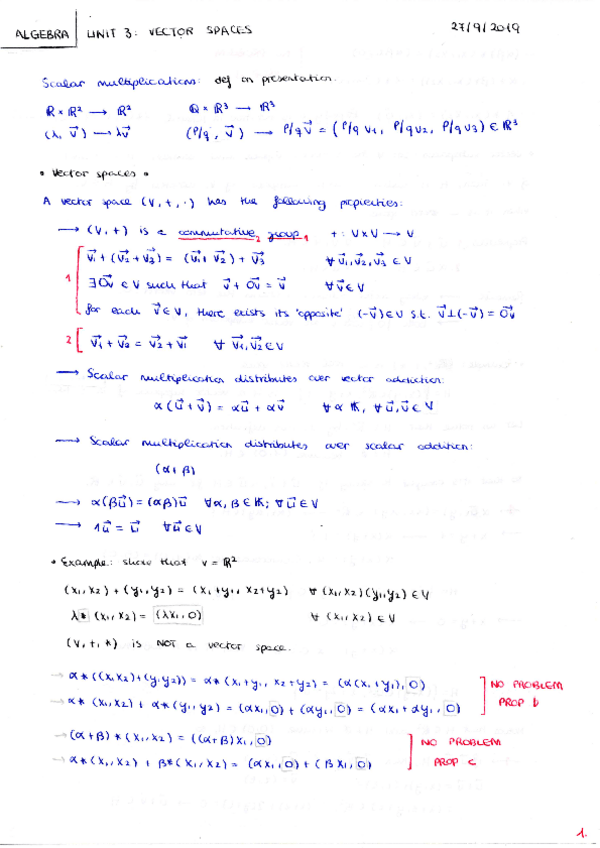 ALGEBRA UNIT 3: VECTOR SPACES 27/9/2019
Scalar multiplications: def on presentation.
ℝ × ℝ² → ℝ² ℚ × ℝ³ → ℝ³
(λ, v⃗) → λv⃗ (p/q, v⃗) → p/q v⃗ = (p/q v₁, p/q v₂, p/q v₃) ∈ ℝ³
• Vector spaces •
A vector space (V, +, ·) has the following properties:
→ (V, +) is a commutative₂ group₁ + : V×V → V
1 [ v⃗₁ + (v⃗₂ + v⃗₃) = (v⃗₁ + v⃗₂) + v⃗₃ ∀ v⃗₁, v⃗₂, v⃗₃ ∈ V
∃ 0⃗v ∈ V such that v⃗ + 0⃗v = v⃗ ∀ v⃗ ∈ V
for each v⃗ ∈ V, there exists its 'opposite' (-v⃗) ∈ V s.t. v⃗ + (-v⃗) = 0⃗v
2 [ v⃗₁ + v⃗₂ = v⃗₂ + v⃗₁ ∀ v⃗₁, v⃗₂ ∈ V
→ Scalar multiplication distributes over vector addiction:
α(u⃗ + v⃗) = αu⃗ + αv⃗ ∀ α 𝕂, ∀ u⃗, v⃗ ∈ V
→ Scalar multiplication distributes over scalar addition:
(α + β)
→ α(βu⃗) = (αβ)u⃗ ∀α, β ∈ 𝕂; ∀ u⃗ ∈ V
→ 1u⃗ = u⃗ ∀u⃗ ∈ V
• Example: show that v = ℝ²
(x₁, x₂) + (y₁, y₂) = (x₁+y₁, x₂+y₂) ∀ (x₁, x₂)(y₁, y₂) ∈ V
λ * (x₁, x₂) = (λx₁, 0) ∀ (x₁, x₂) ∈ V
(V, +, *) is NOT a vector space.
→ α * ((x₁x₂)+(y₁y₂)) = α * (x₁+y₁, x₂+y₂) = (α(x₁+y₁), 0) ] NO PROBLEM
→ α * (x₁, x₂) + α * (y₁, y₂) = (αx₁, 0) + (αy₁, 0) = (αx₁ + αy₁, 0) PROP b
→ (α + β) * (x₁, x₂) = ((α+β)x₁, 0) ] NO PROBLEM
→ α * (x₁, x₂) + β * (x₁, x₂) = (αx₁, 0) + (βx₁, 0) PROP c
1.